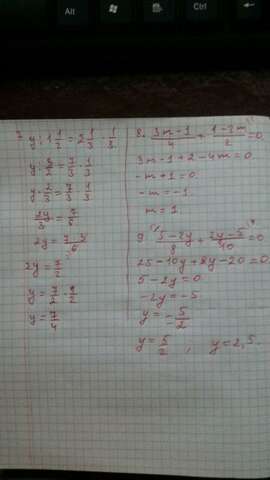 Alt
Alt
Ctrl
7. y : 1 1/2 = 2 1/3 · 1/3
y : 3/2 = 7/3 · 1/3
y · 2/3 = 7/3 · 1/3
2y =
2y = 7/2
y = 7/2 ·
y = 7/4
8. (3m-1)/4 + (1-2m)/2 = 0
3m-1+2-4m=0
-m+1=0
-m=-1
m=1.
9. (5-2y)/8 + (2y-5)/40 = 0
25-10y+8y-20=0
5-2y=0
-2y=-5
y = -5/2
y = 5/2 , y=2,5.